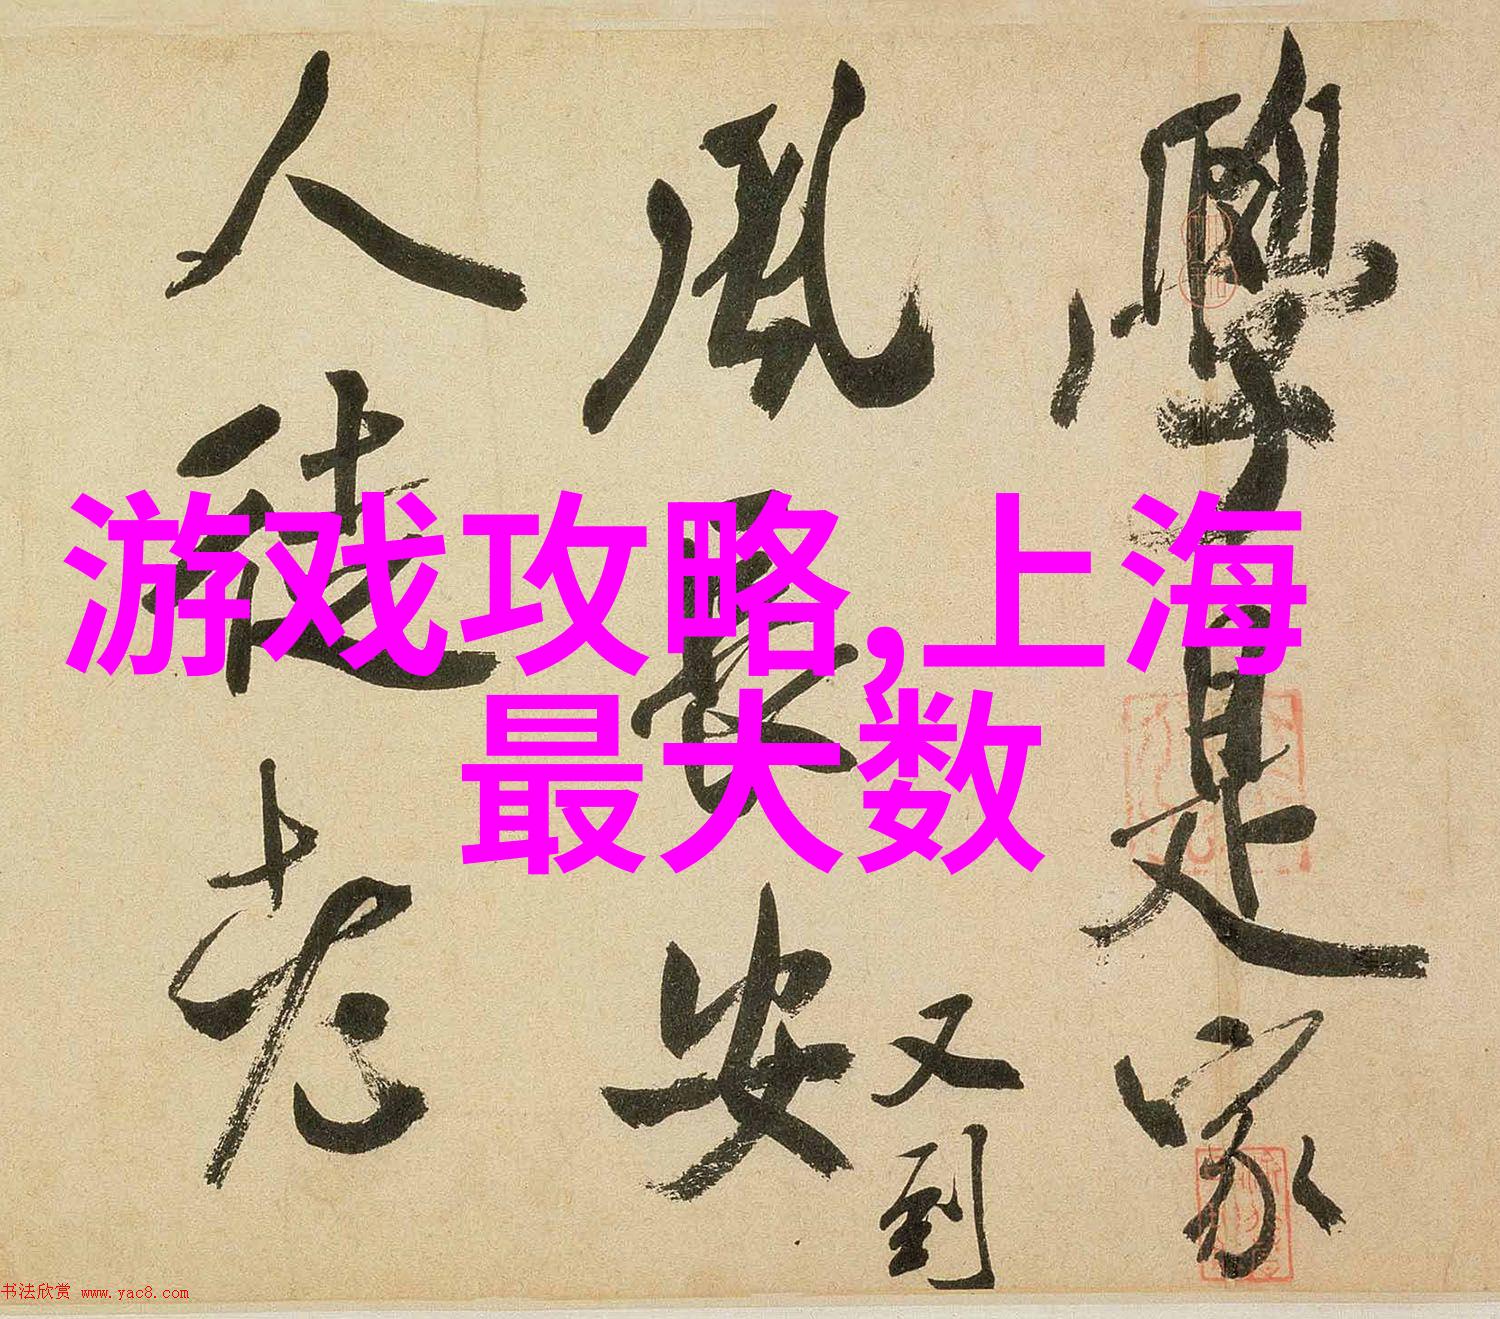 學是家
風長安
又到
人徒老
游戏攻略,上海
最大数
书法欣赏 www.yac8.com